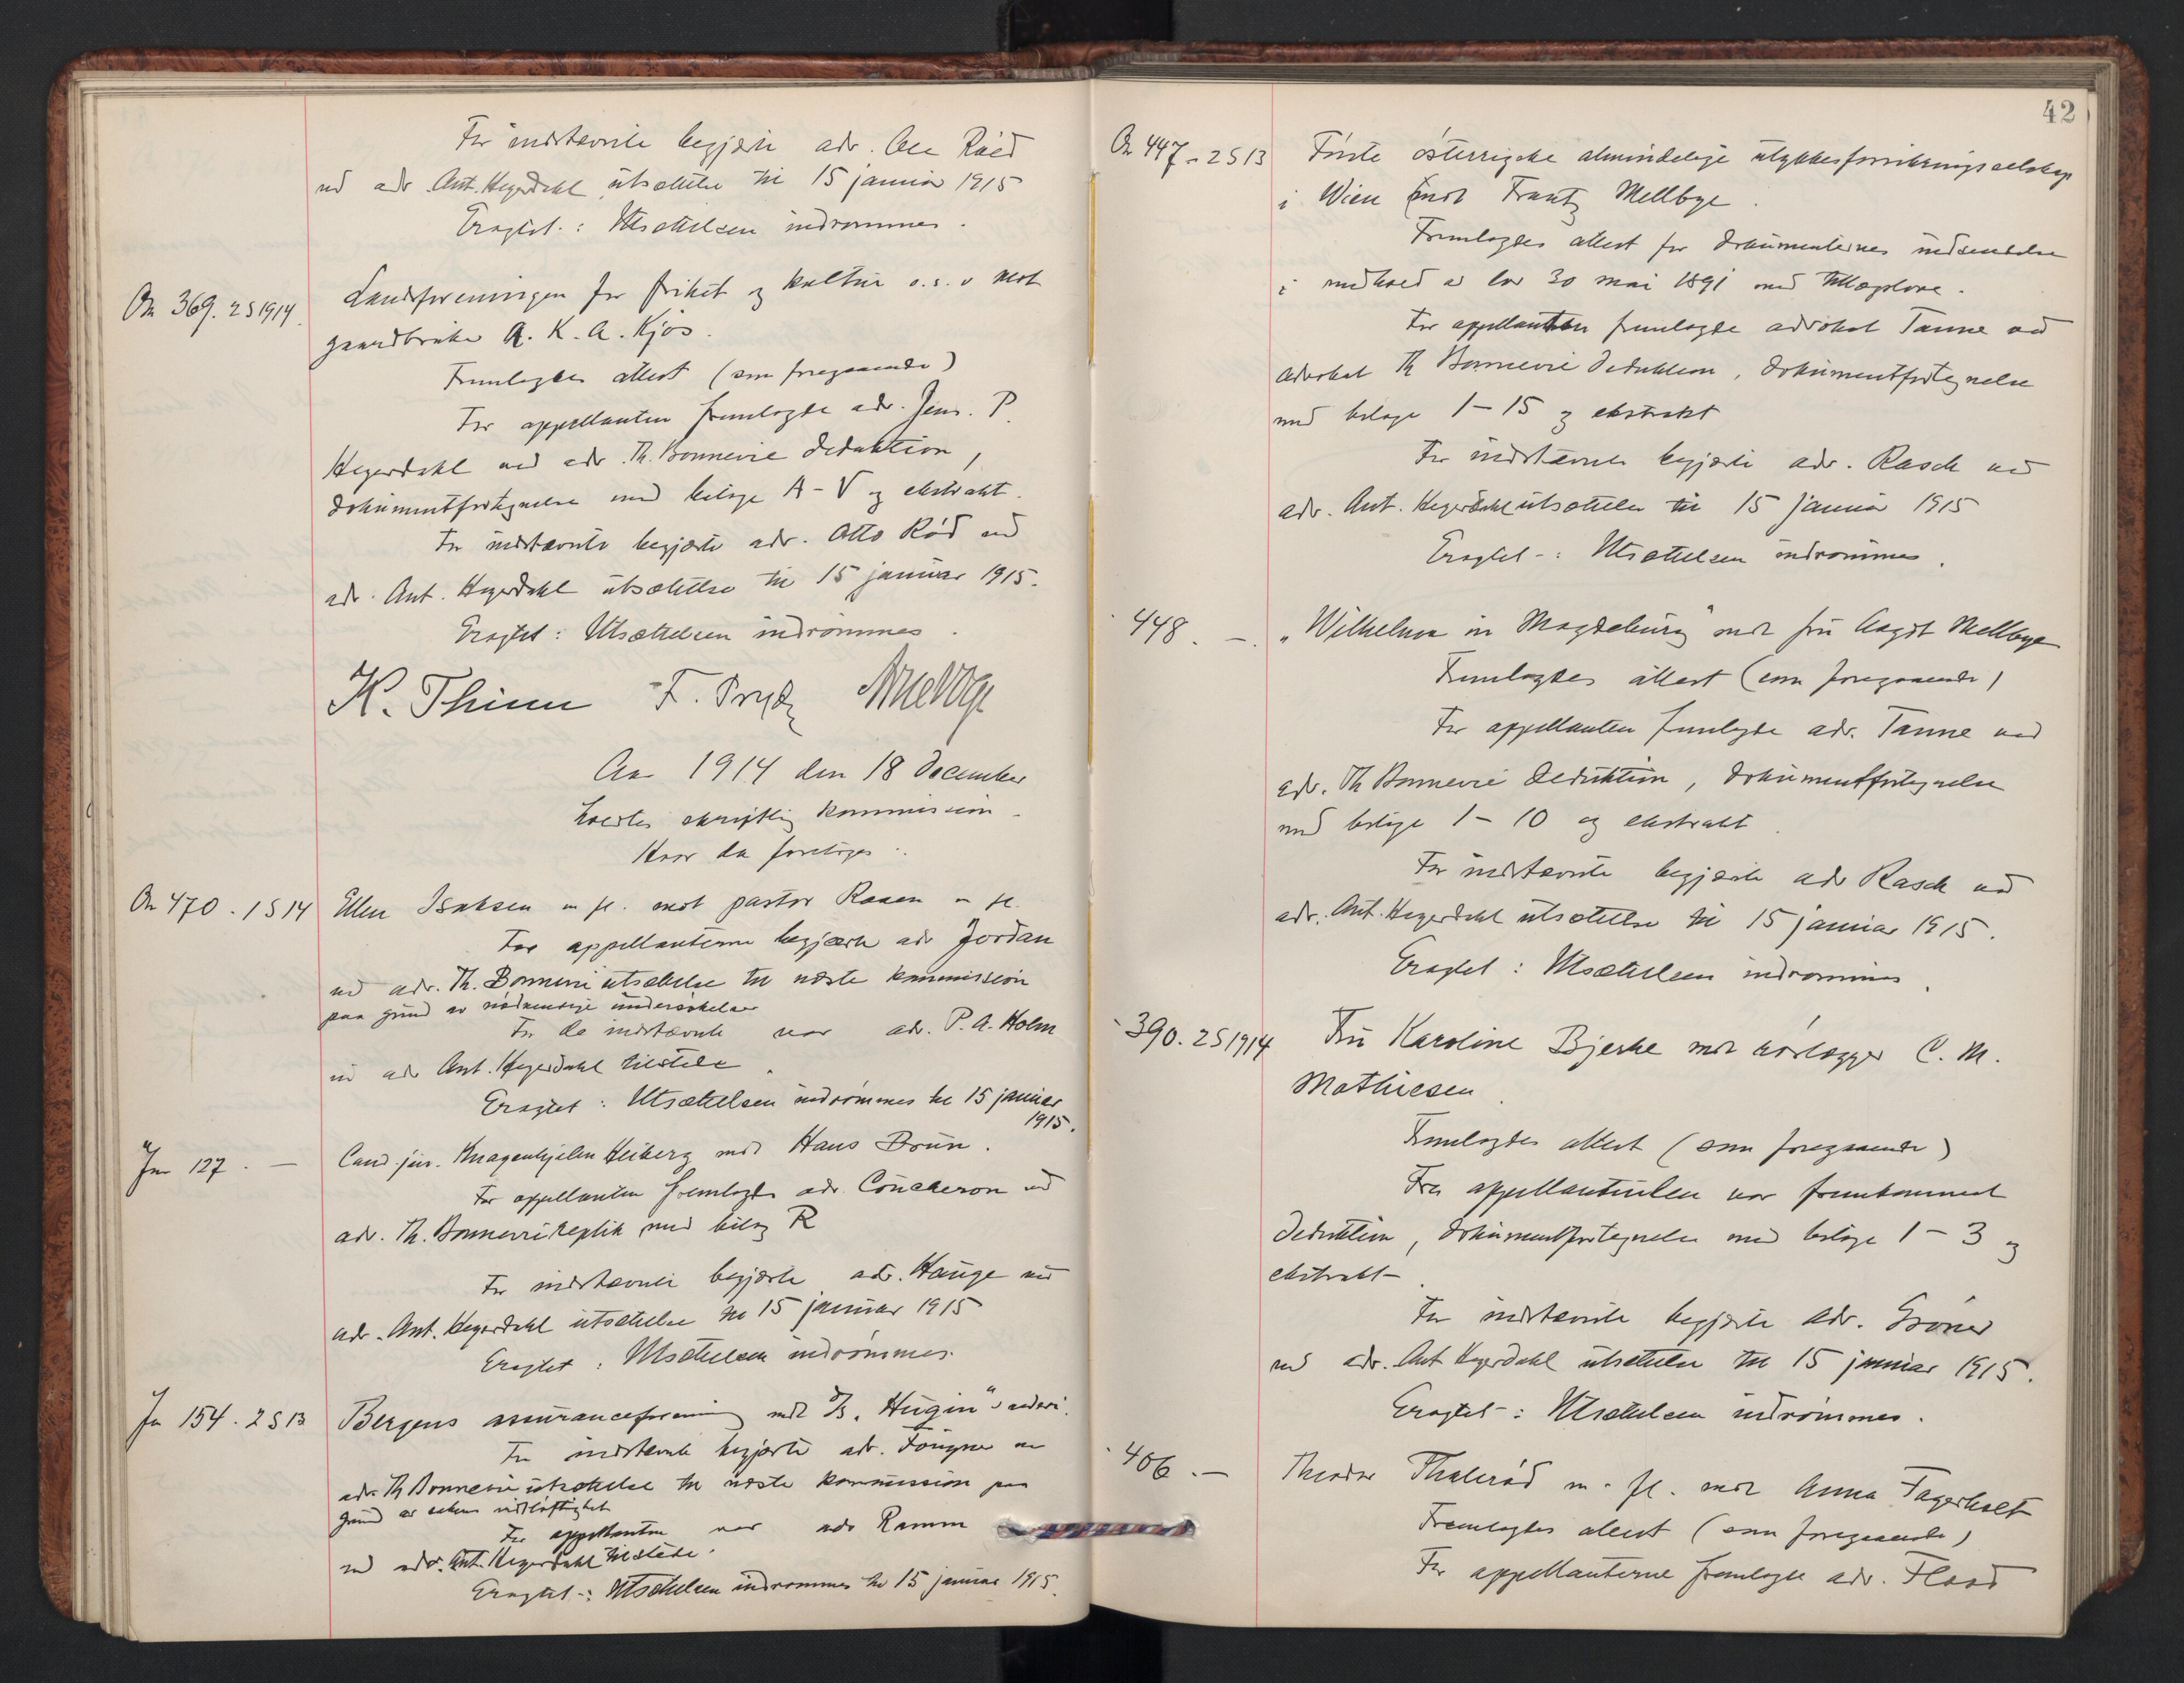 For indstævnte begjærte adv. Ole Røed
ved adv. Ant. Hegerdahl utsættelse til 15 januar 1915
Eragtet: Utsættelsen indrømmes.
On 369. 2 S 1914. Landsforeningen for frihet og kultur o.s.v mot
gaardbruker A. K. A. Kjos.
Fremlagdes attest (som foregaaende)
For appellanten fremlagde adv. Jens. P.
Hegerdahl ved adv. Th. Bonnevie deduktion,
dokumentfortegnelse med bilage A-V og ekstrakt.
For indstævnte begjærte adv. Otto Rød ved
adv. Ant. Hegerdahl utsættelse til 15 januar 1915.
Eragtet: Utsættelsen indrømmes.
K. Thinn F. Prydz
Aar 1914 den 18 december
holdtes skriftlig kommission.
Hvor da foretoges:
On 470. 1 S 14 Ellen Isaksen m fl. mot pastor Raaen m fl.
For appellanterne begjærte adv Jordan
ved adv. Th. Bonnevie utsættelse til næste kommission
paa grund av nødvendige undersøkelser
For de indstævnte var adv. P. A. Holm
ved adv Ant. Hegerdahl tilstede.
Eragtet: Utsættelsen indrømmes til 15 januar
1915.
Jm 127. — Cand. jur. Knagenhjelm Heiberg mot Hans Brun.
For appellanten fremlagde adv. Coucheron ved
adv. Th. Bonnevie replik med bilag R
For indstævnte begjærte adv. Hauge ved
adv. Ant. Hegerdahl utsættelse til 15 januar 1915
Eragtet: Utsættelsen indrømmes.
Jm 154. 2 S 13 Bergens assuranceforening mot D/S. "Hugin"s rederi.
For indstævnte begjærte adv. Fougner ved
adv. Th Bonnevie utsættelse til næste kommission paa
grund av sakens vidløftighet
For appellanten var adv Ramm
ved adv. Ant. Hegerdahl tilstede.
Eragtet: Utsættelsen indrømmes til 15 januar 1915.
42
On 447. 2 S 13 Første østerrigske almindelige ulykkesforsikringsselskap
i Wien mot Frantz Mellbye.
Fremlagdes attest for dokumenternes indsendelse
i medhold av lov 30 mai 1891 med tillægslove.
For appellanten fremlagde advokat Tanne ved
advokat Th Bonnevie deduktion, dokumentfortegnelse
med bilage 1-15 og ekstrakt
For indstævnte begjærte adv. Rasch ved
adv. Ant. Hegerdahl utsættelse til 15 januar 1915
Eragtet: Utsættelsen indrømmes.
448. — "Wilhelma in Magdeburg" mot fru Aagot Mellbye
Fremlagdes attest (som foregaaende)
For appellanten fremlagde adv. Tanne ved
adv. Th Bonnevie deduktion, dokumentfortegnelse
med bilage 1-10 og ekstrakt.
For indstævnte begjærte adv Rasch ved
adv. Ant. Hegerdahl utsættelse til 15 januar 1915.
Eragtet: Utsættelsen indrømmes.
390. 2 S 1914 Fru Karoline Bjerke mot rørlægger C. M.
Mathiesen.
Fremlagdes attest (som foregaaende)
Fra appellantinden var fremkommet
deduktion, dokumentfortegnelse med bilage 1-3 og
ekstrakt.
For indstævnte begjærte adv. Grøner
ved adv. Ant Hegerdahl utsættelse til 15 januar 1915.
Eragtet: Utsættelsen indrømmes.
406. — Theodor Thalerød m. fl. mot Anna Fagerholt
Fremlagdes attest (som foregaaende)
For appellanterne fremlagde adv. Flood